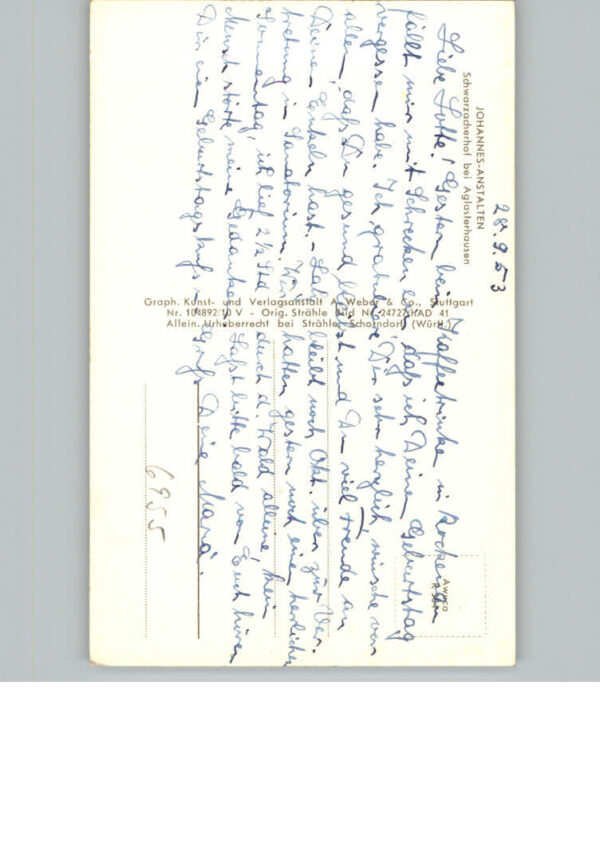 JOHANNES-ANSTALTEN
Schwarzacherhof bei Aglasterhausen
28.9.53
Liebe Lotte! Gestern beim Kaffeetrinken in
fällt mir mit Schrecken ein, daß ich Deinen Geburtstag
vergessen habe. Ich gratuliere Dir sehr herzlich, wünsche vor
allem, daß Du gesund bleibst und Du viel Freude an
Deinen Enkeln hast. - bleibt noch Okt. über zur Ver-
tretung im Sanatorium. Wir hatten gestern noch einen herrlichen
Sonnentag, ich lief 2½ Std durch d. Wald alleine, kein
Mensch störte meine Gedanken. Laßt bitte bald von Euch hören
Dir einen Geburtstagskuß u. Gruß Deine
Graph. Kunst- und Verlagsanstalt A. Weber & Co., Stuttgart
Nr. 104892/10 V - Orig. Strähle Bild Nr. 24727 HAD 41
Allein. Urheberrecht bei Strähle, Schorndorf (Württ.)
6955